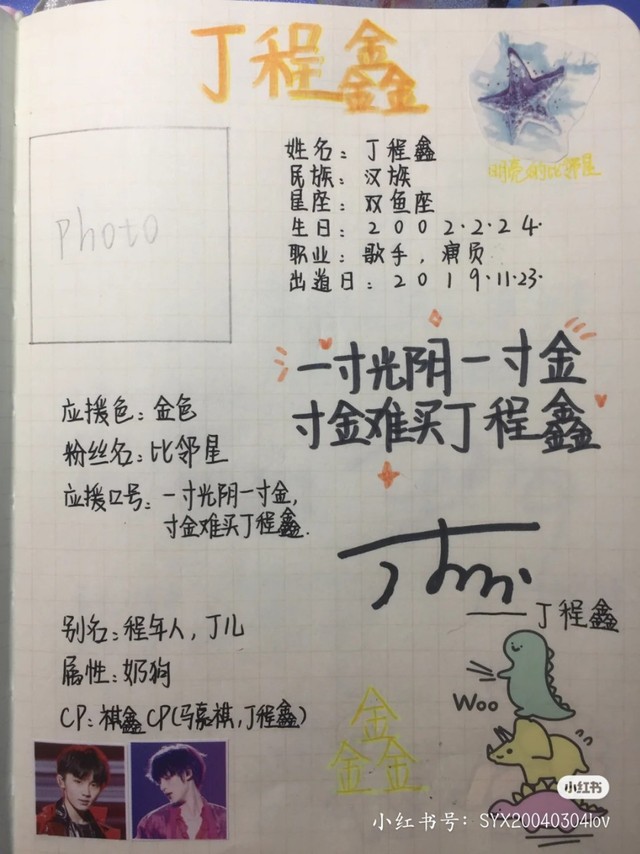 丁程鑫
明亮的比邻星
Photo
姓名：丁程鑫
民族：汉族
星座：双鱼座
生日：2002.2.24.
职业：歌手，演员
出道日：2019.11.23.
一寸光阴一寸金
寸金难买丁程鑫
应援色：金色
粉丝名：比邻星
应援口号：一寸光阴一寸金，
寸金难买丁程鑫.
丁程鑫
别名：程年人，丁儿
属性：奶狗
CP：祺鑫CP(马嘉祺，丁程鑫)
Woo
鑫
小红书
小红书号：SYX20040304lov